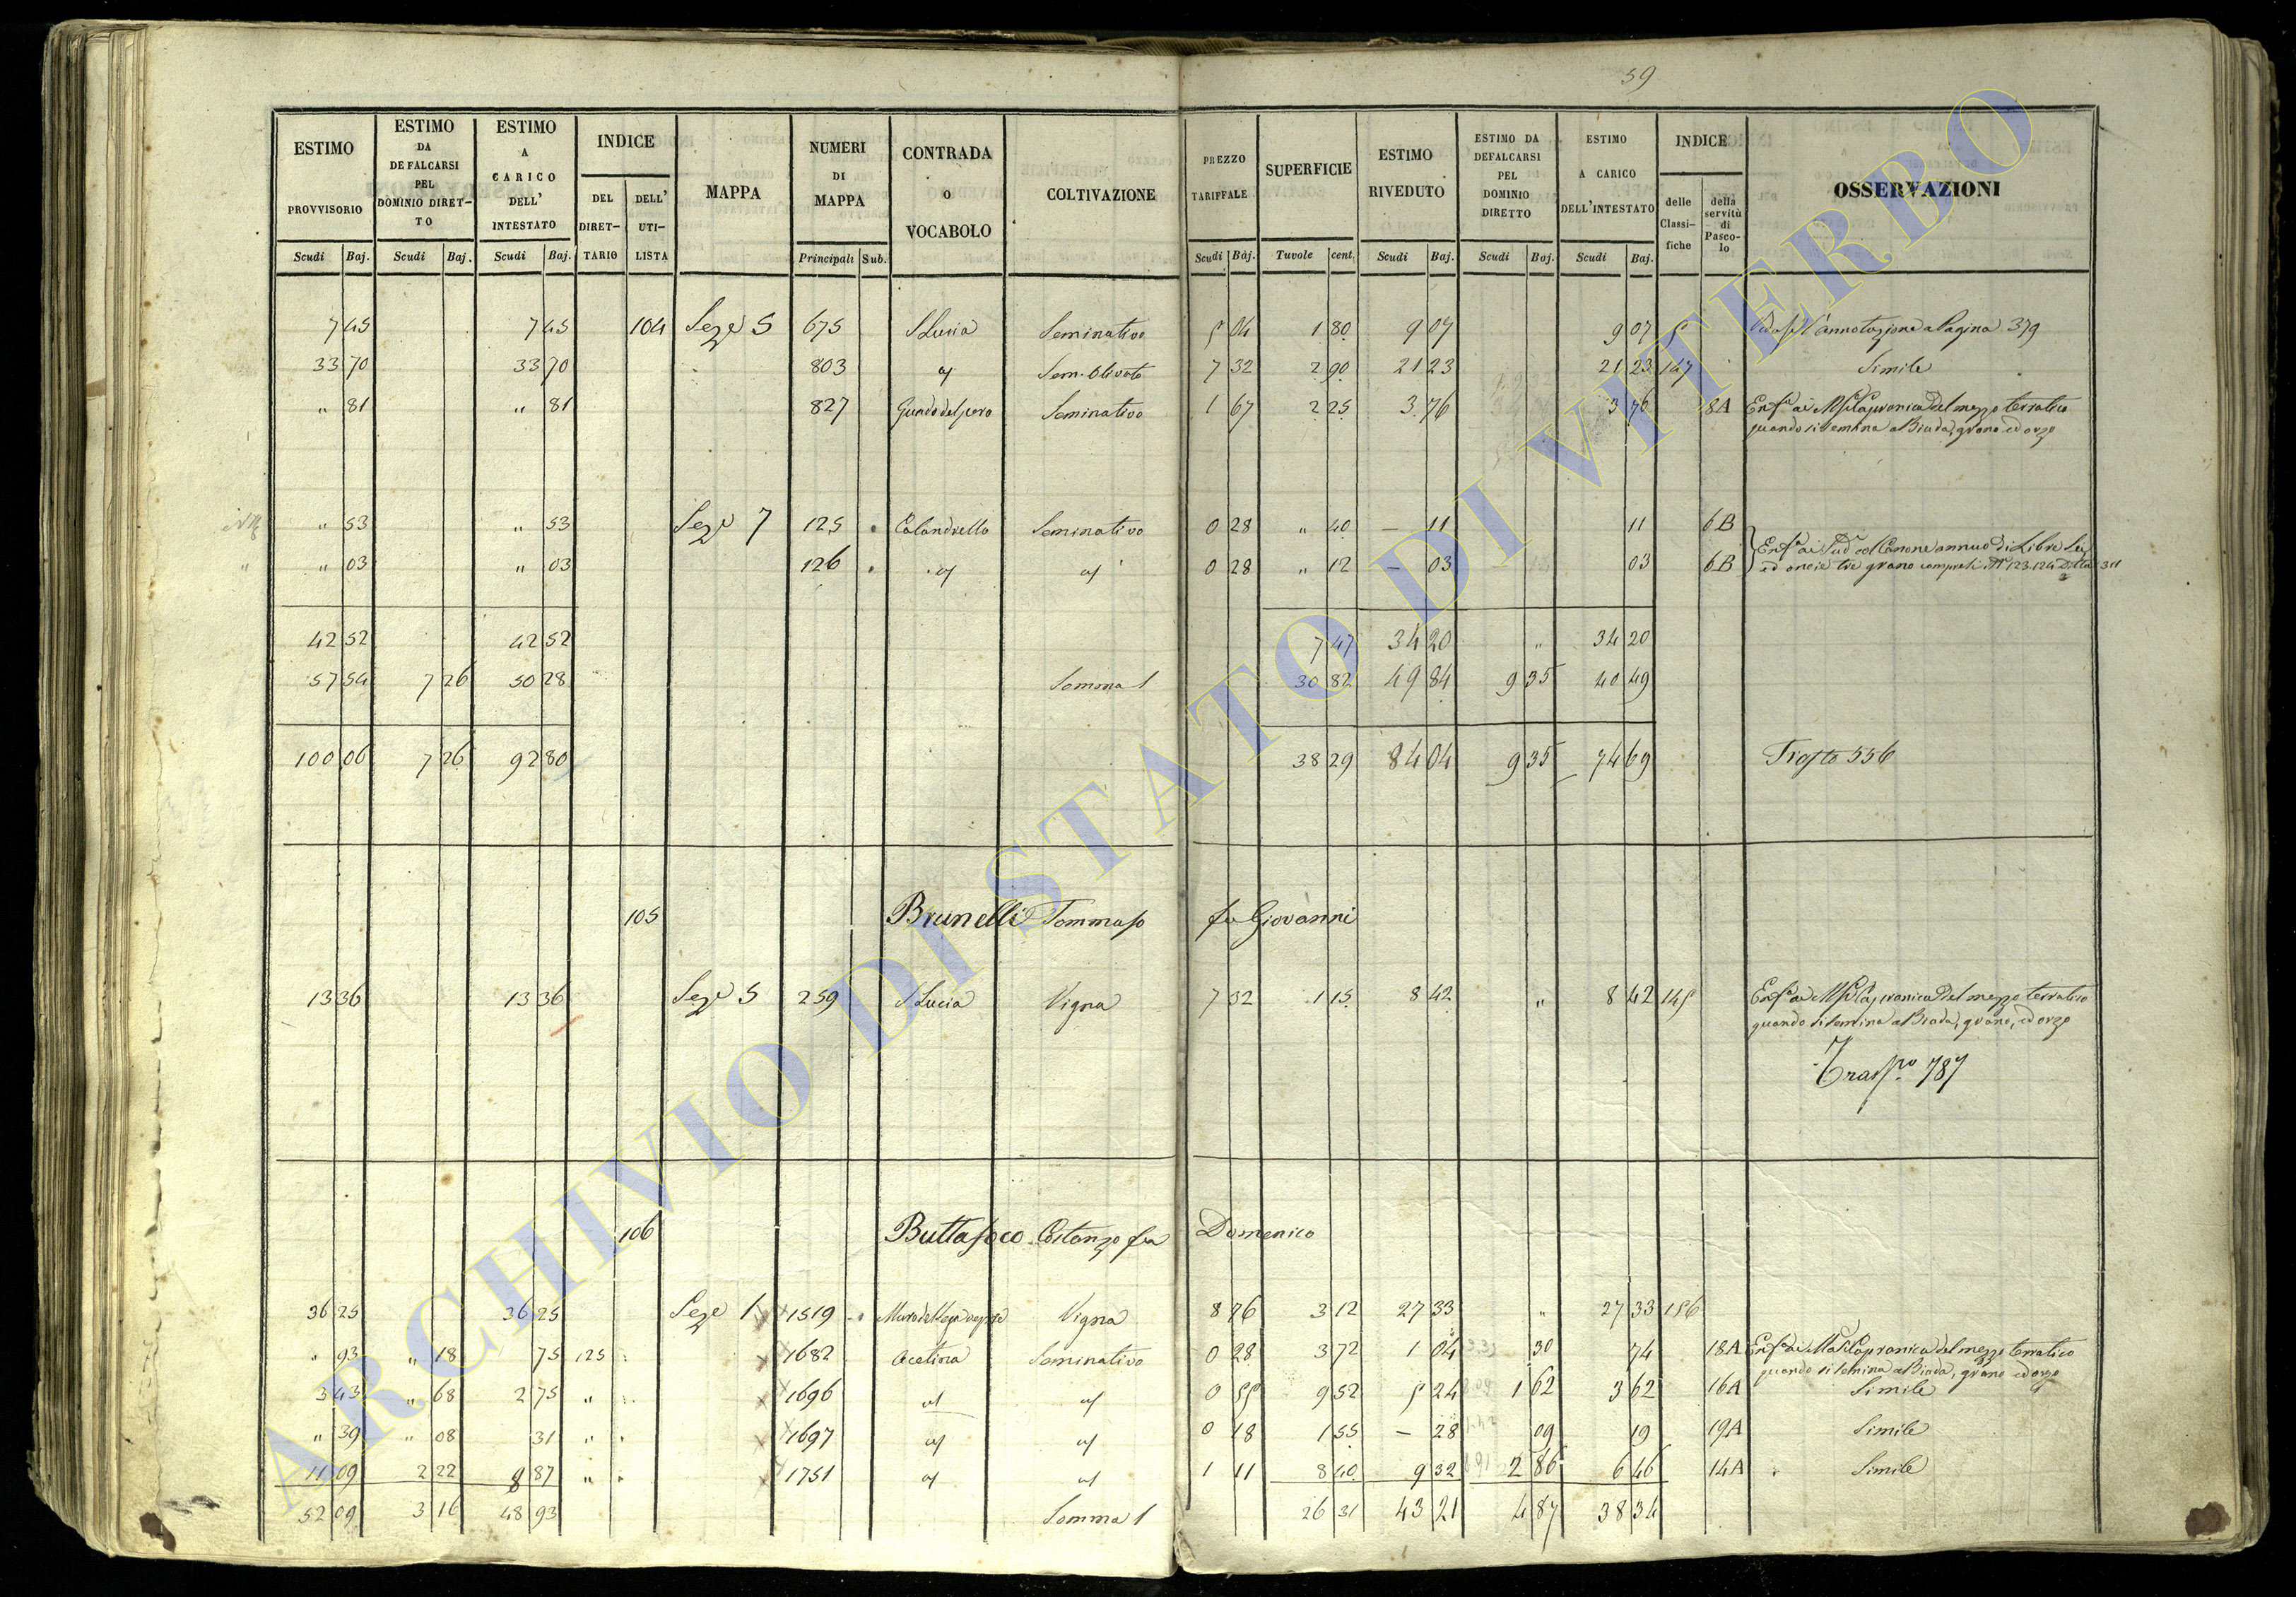 59
ESTIMO PROVVISORIO | ESTIMO DA DEFALCARSI PEL DOMINIO DIRETTO | ESTIMO A CARICO DELL' INTESTATO | INDICE | MAPPA | NUMERI DI MAPPA | CONTRADA O VOCABOLO | COLTIVAZIONE | PREZZO TARIFFALE | SUPERFICIE | ESTIMO RIVEDUTO | ESTIMO DA DEFALCARSI PEL DOMINIO DIRETTO | ESTIMO A CARICO DELL'INTESTATO | INDICE | OSSERVAZIONI
DEL DIRETTARIO | DELL' UTILISTA | delle Classifiche | della servitù di Pascolo
Scudi | Baj. | Scudi | Baj. | Scudi | Baj. | Principali | Sub. | Scudi | Baj. | Tavole | cent. | Scudi | Baj. | Scudi | Baj. | Scudi | Baj.
7 45 | 7 45 | 104 | Seze 5 | 675 | S Lucia | Seminativo | 5 04 | 1 80 | 9 07 | 9 07 | 5 | l'annotazione a Pagina 379
33 70 | 33 70 | 803 | Sem. Olivato | 7 32 | 2 90 | 21 23 | 21 23 | 147 | Simile
" 81 | " 81 | 827 | Seminativo | 1 67 | 2 25 | 3 76 | 3 76 | 8A | del mezzo terratico
quando si semina a Biada, grano ed orzo
" 53 | " 53 | Seze 7 | 125 | Calandrella | Seminativo | 0 28 | " 40 | – 11 | 11 | 6B | Canone annuo di Libre Sei
" 03 | " 03 | 126 | 0 28 | " 12 | – 03 | 03 | 6B | ed oncie tre grano
42 52 | 42 52 | 7 47 | 34 20 | " | 34 20
57 54 | 7 26 | 50 28 | Somma 1 | 30 82 | 49 84 | 9 35 | 40 49
100 06 | 7 26 | 92 80 | 38 29 | 84 04 | 9 35 | 74 69 | 556
105 | Brunelli Tommaso fu Giovanni
13 36 | 13 36 | Seze 5 | 259 | S Lucia | Vigna | 7 32 | 1 15 | 8 42 | " | 8 42 | 145 | del mezzo terratico
quando si semina a Biada, grano, ed orzo
Trasp.o 787
106 | Buttafoco Costanzo fu Domenico
36 25 | 36 25 | Seze 1 | 1519 | Vigna | 8 76 | 3 12 | 27 33 | " | 27 33 | 156
" 93 | " 18 | 75 | 125 | 1682 | Acetina | Seminativo | 0 28 | 3 72 | 1 04 | 30 | 74 | 18A | del mezzo terratico
quando si semina a Biada, grano ed orzo
3 43 | " 68 | 2 75 | " | 1696 | 0 55 | 9 52 | 5 24 | 1 62 | 3 62 | 16A | Simile
" 39 | " 08 | 31 | " | 1697 | 0 18 | 1 55 | – 28 | 09 | 19 | 19A | Simile
11 09 | 2 22 | 8 87 | " | 1751 | 1 11 | 8 40 | 9 32 | 2 86 | 6 46 | 14A | Simile
52 09 | 3 16 | 48 93 | Somma 1 | 26 31 | 43 21 | 4 87 | 38 34
ARCHIVIO DI STATO DI VITERBO